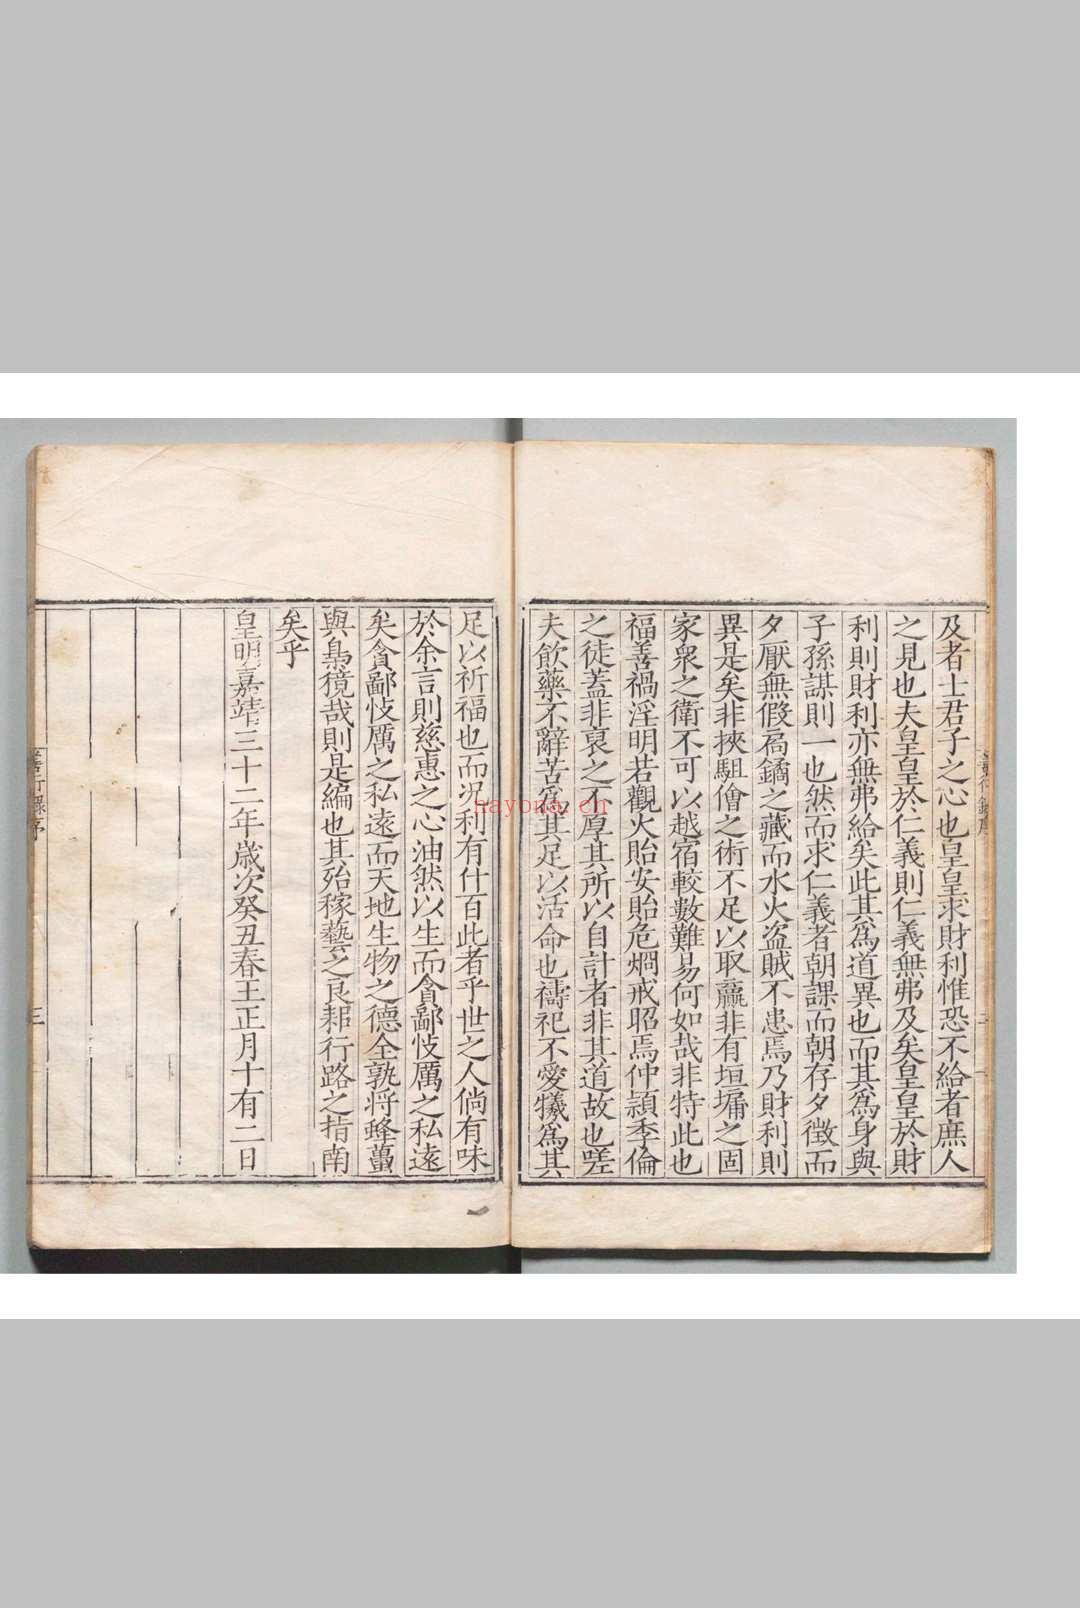 及者士君子之心也皇皇求財利惟恐不給者庶人
之見也夫皇皇於仁義則仁義無弗及矣皇皇於財
利則財利亦無弗給矣此其爲道異也而其爲身與
子孫謀則一也然而求仁義者朝課而朝存夕徵而
夕厭無假扃鐍之藏而水火盜賊不患焉乃財利則
異是矣非挾駔儈之術不足以取贏非有垣墉之固
家衆之衛不可以越宿較數難易何如哉非特此也
福善禍淫明若觀火貽安貽危烱戒昭焉仲頴季倫
之徒蓋非裒之不厚其所以自計者非其道故也嗟
夫飲藥不辭苦爲其足以活命也禱祀不愛犧爲其
足以祈福也而况利有什百此者乎世之人倘有味
於余言則慈惠之心油然以生而貪鄙忮厲之私遠
矣貪鄙忮厲之私遠而天地生物之德全孰將蜂蠆
與梟獍哉則是編也其殆稼藝之良耜行路之指南
矣乎
皇明嘉靖三十二年歲次癸丑春王正月十有二日
善行錄序
三
nayona.cn